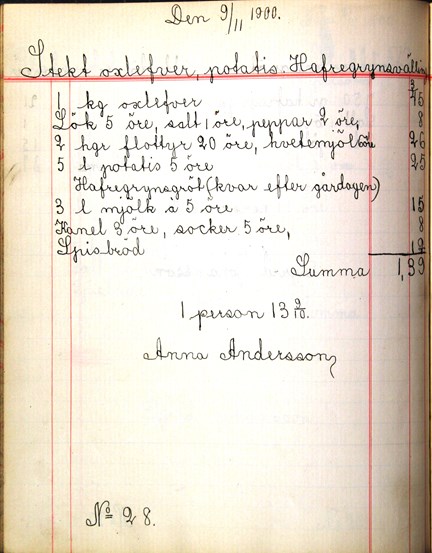 Den 9/11 1900.
Stekt oxlefver, potatis. Hafregrynsvälling
1 kg oxlefver 45
Lök 5 öre, salt 1 öre, peppar 2 öre, 8
2 hgr flottyr 20 öre, hvetemjöl 6 öre 26
5 l potatis 5 öre 25
Hafregrynsgröt (kvar efter gårdagen)
3 l mjölk à 5 öre 15
Kanel 3 öre, socker 5 öre, 8
Spisbröd 12
Summa 1,39
1 person 13 9/10.
Anna Andersson
№ 28.